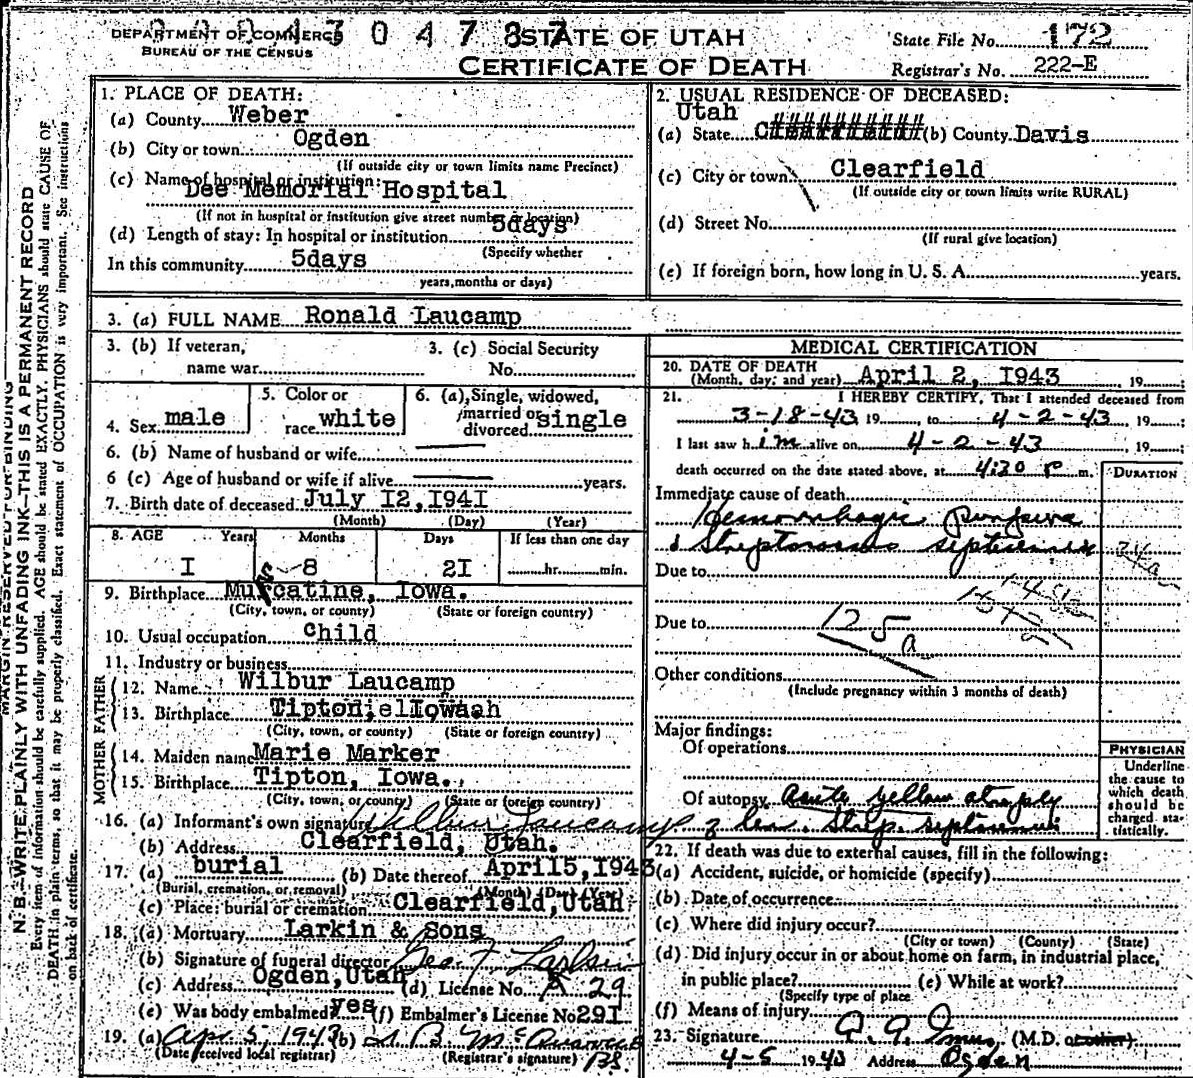 DEPARTMENT OF COMMERCE
BUREAU OF THE CENSUS
4 3 0 4 7 8 7
STATE OF UTAH
CERTIFICATE OF DEATH
State File No. 172
Registrar's No. 222-E
MARGIN RESERVED FOR BINDING
N. B.—WRITE PLAINLY WITH UNFADING INK—THIS IS A PERMANENT RECORD
Every item of information should be carefully supplied. AGE should be stated EXACTLY. PHYSICIANS should state CAUSE OF
DEATH in plain terms, so that it may be properly classified. Exact statement of OCCUPATION is very important. See instructions
on back of certificate.
1. PLACE OF DEATH:
(a) County Weber
(b) City or town Ogden
(If outside city or town limits name Precinct)
(c) Name of hospital or institution:
Dee Memorial Hospital
(If not in hospital or institution give street number or location)
(d) Length of stay: In hospital or institution 5days
(Specify whether
In this community 5days
years, months or days)
2. USUAL RESIDENCE OF DECEASED:
Utah
(a) State Clearfield (b) County Davis
(c) City or town Clearfield
(If outside city or town limits write RURAL)
(d) Street No.
(If rural give location)
(e) If foreign born, how long in U. S. A. years.
3. (a) FULL NAME Ronald Laucamp
3. (b) If veteran,
name war
3. (c) Social Security
No.
4. Sex male
5. Color or
race white
6. (a) Single, widowed,
married or
divorced single
6. (b) Name of husband or wife
6 (c) Age of husband or wife if alive years.
7. Birth date of deceased July I2,194I
(Month) (Day) (Year)
8. AGE Years Months Days If less than one day
I 8 2I hr. min.
9. Birthplace Muscatine, Iowa.
(City, town, or county) (State or foreign country)
10. Usual occupation Child
11. Industry or business
FATHER
12. Name Wilbur Laucamp
13. Birthplace Tipton, Iowa
(City, town, or county) (State or foreign country)
MOTHER
14. Maiden name Marie Marker
15. Birthplace Tipton, Iowa.
(City, town, or county) (State or foreign country)
16. (a) Informant's own signature Wilbur Laucamp
(b) Address Clearfield, Utah.
17. (a) burial (b) Date thereof April5,I943
(Burial, cremation, or removal) (Month) (Day) (Year)
(c) Place: burial or cremation Clearfield,Utah
18. (a) Mortuary Larkin & Sons
(b) Signature of funeral director Geo F Larkin
(c) Address Ogden,Utah (d) License No. A 29
(e) Was body embalmed? yes (f) Embalmer's License No 29I
19. (a) Apr. 5, 1943 (b)
(Date received local registrar) (Registrar's signature)
MEDICAL CERTIFICATION
20. DATE OF DEATH
(Month, day, and year) April 2, I943 , 19 ;
21. I HEREBY CERTIFY, That I attended deceased from
3-18-43 19 , to 4-2-43 , 19 ;
I last saw him alive on 4-2-43 , 19 ;
death occurred on the date stated above, at 4:30 P m.
DURATION
Immediate cause of death
Hemorrhagic purpura
& Streptococcus septicemia
Due to
Due to
125
a
Other conditions
(Include pregnancy within 3 months of death)
Major findings:
Of operations
Of autopsy Acute yellow atrophy
of liver. Strep. septicemia
PHYSICIAN
Underline
the cause to
which death
should be
charged sta-
tistically.
22. If death was due to external causes, fill in the following:
(a) Accident, suicide, or homicide (specify)
(b) Date of occurrence
(c) Where did injury occur?
(City or town) (County) (State)
(d) Did injury occur in or about home on farm, in industrial place,
in public place? (e) While at work?
(Specify type of place
(f) Means of injury
23. Signature (M.D. or other)
4-5 1943 Address Ogden